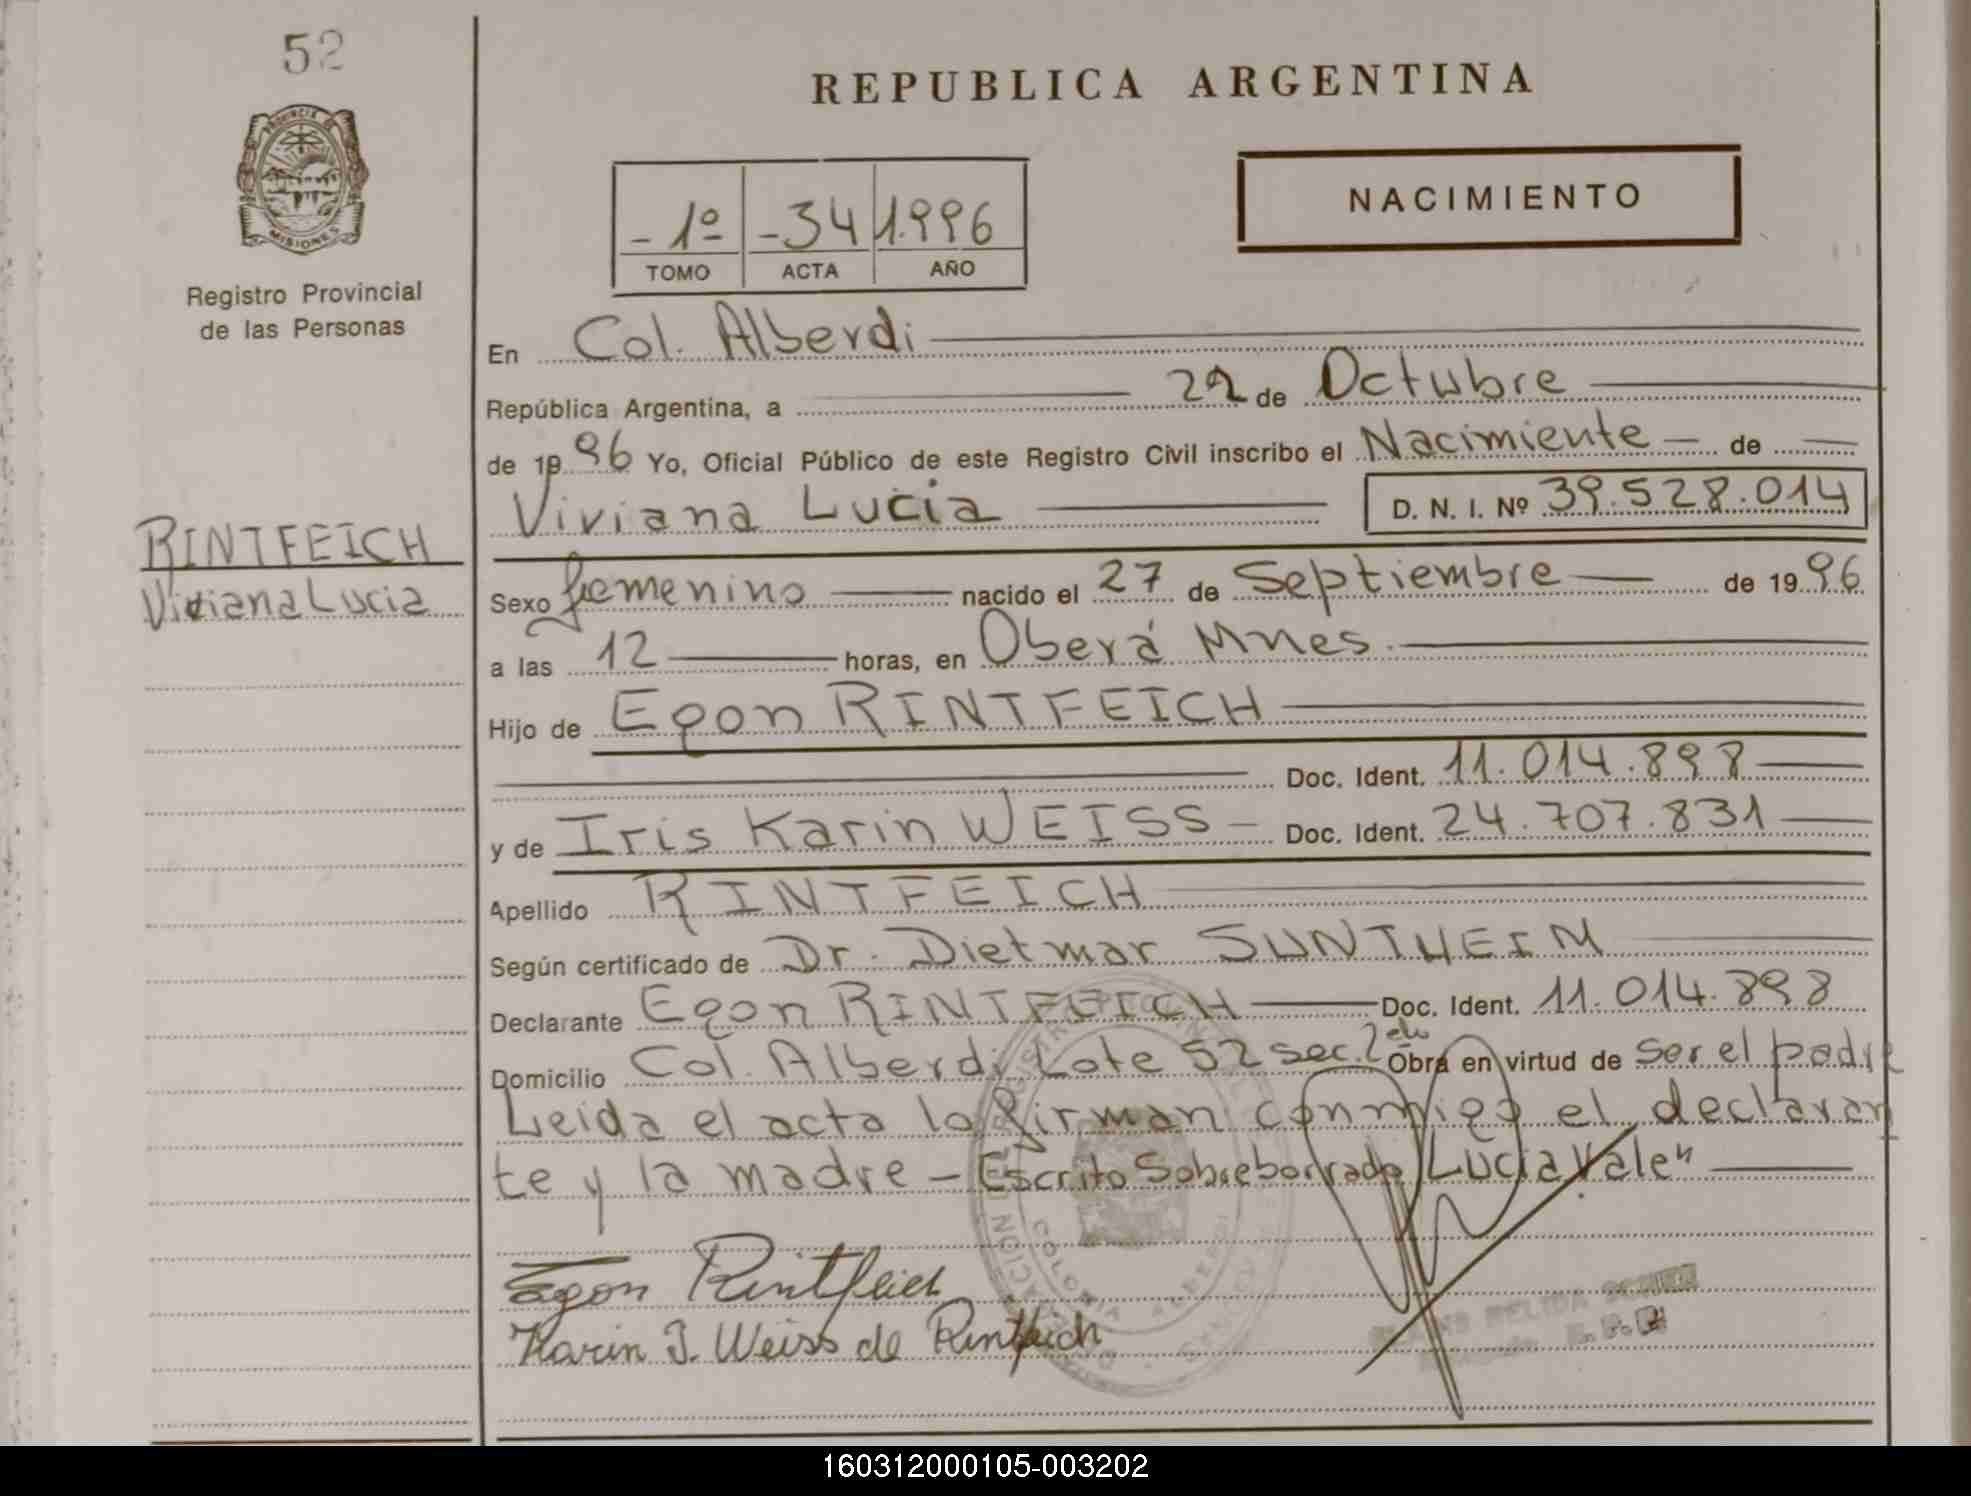 52
REPUBLICA ARGENTINA
PROVINCIA DE
MISIONES
Registro Provincial
de las Personas
- 1º -34 1.996
TOMO ACTA AÑO
NACIMIENTO
En Col. Alberdi
República Argentina, a 22 de Octubre
de 1996 Yo, Oficial Público de este Registro Civil inscribo el Nacimiente de
Viviana Lucia D. N. I. Nº 39.528.014
RINTFEICH
Viviana Lucia
Sexo femenino nacido el 27 de Septiembre de 1996
a las 12 horas, en Oberá Mnes.
Hijo de Egon RINTFEICH
Doc. Ident. 11.014.898
y de Iris Karin WEISS Doc. Ident. 24.707.831
Apellido RINTFEICH
Según certificado de Dr. Dietmar SUNTHEIM
Declarante Egon RINTFEICH Doc. Ident. 11.014.898
Domicilio Col. Alberdi Lote 52 sec. Obra en virtud de ser el padre
Leida el acta lo firman conmigo el declaran
te y la madre - Escrito Sobreborrado Lucia Vale"
Egon Rintfeich
Karin I. Weiss de Rintfeich
COLONIA ALBERDI
160312000105-003202